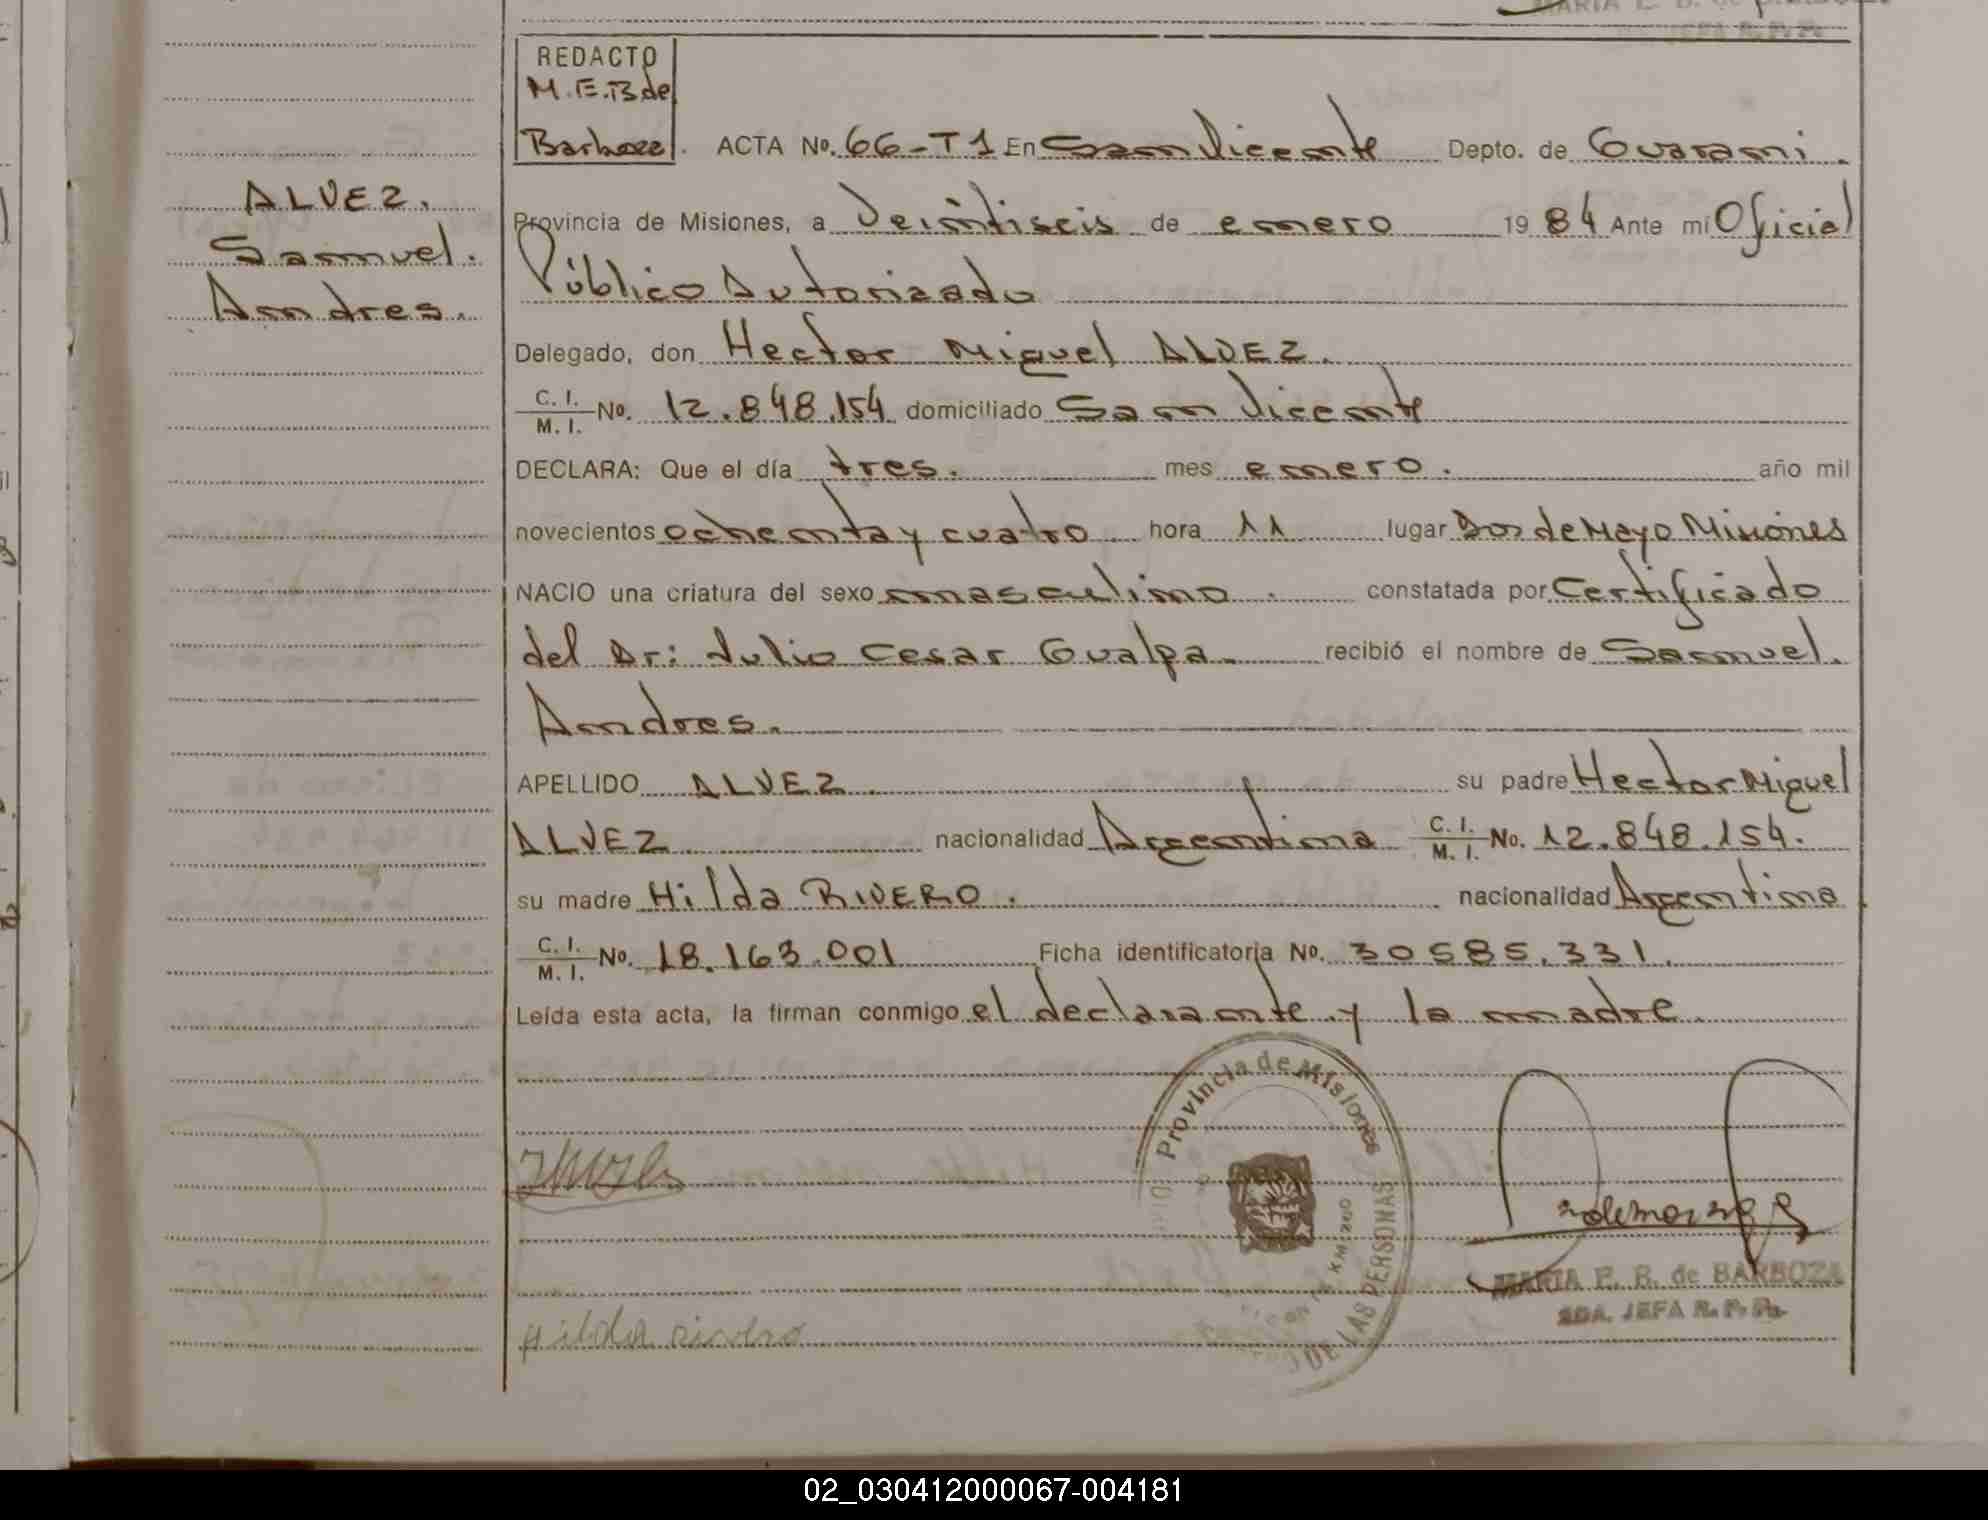 REDACTO
M.E.B de
Barboza.
ACTA No. 66-T1 En San Vicente Depto. de Guarani.
ALVEZ.
Samuel.
Andres.
Provincia de Misiones, a Veintiseis de enero 1984 Ante mí Oficial
Público Autorizado
Delegado, don Hector Miguel ALVEZ.
C. I.
M. I. No. 12.848.154 domiciliado San Vicente
DECLARA: Que el día tres. mes enero. año mil
novecientos ochenta y cuatro hora 11 lugar Dos de Mayo Misiones
NACIO una criatura del sexo masculino. constatada por Certificado
del Dr: Julio Cesar Gualpa. recibió el nombre de Samuel.
Andres.
APELLIDO ALVEZ. su padre Hector Miguel
ALVEZ nacionalidad Argentina C. I.
M. I. No. 12.848.154.
su madre Hilda RIVERO. nacionalidad Argentina
C. I.
M. I. No. 18.163.001 Ficha identificatoria No. 30585.331.
Leída esta acta, la firman conmigo el declarante y la madre
Provincia de Misiones
DE LAS PERSONAS
KM 1260
MARIA E. B. de BARBOZA
JEFA R. P. P.
Hilda rivero
02_030412000067-004181